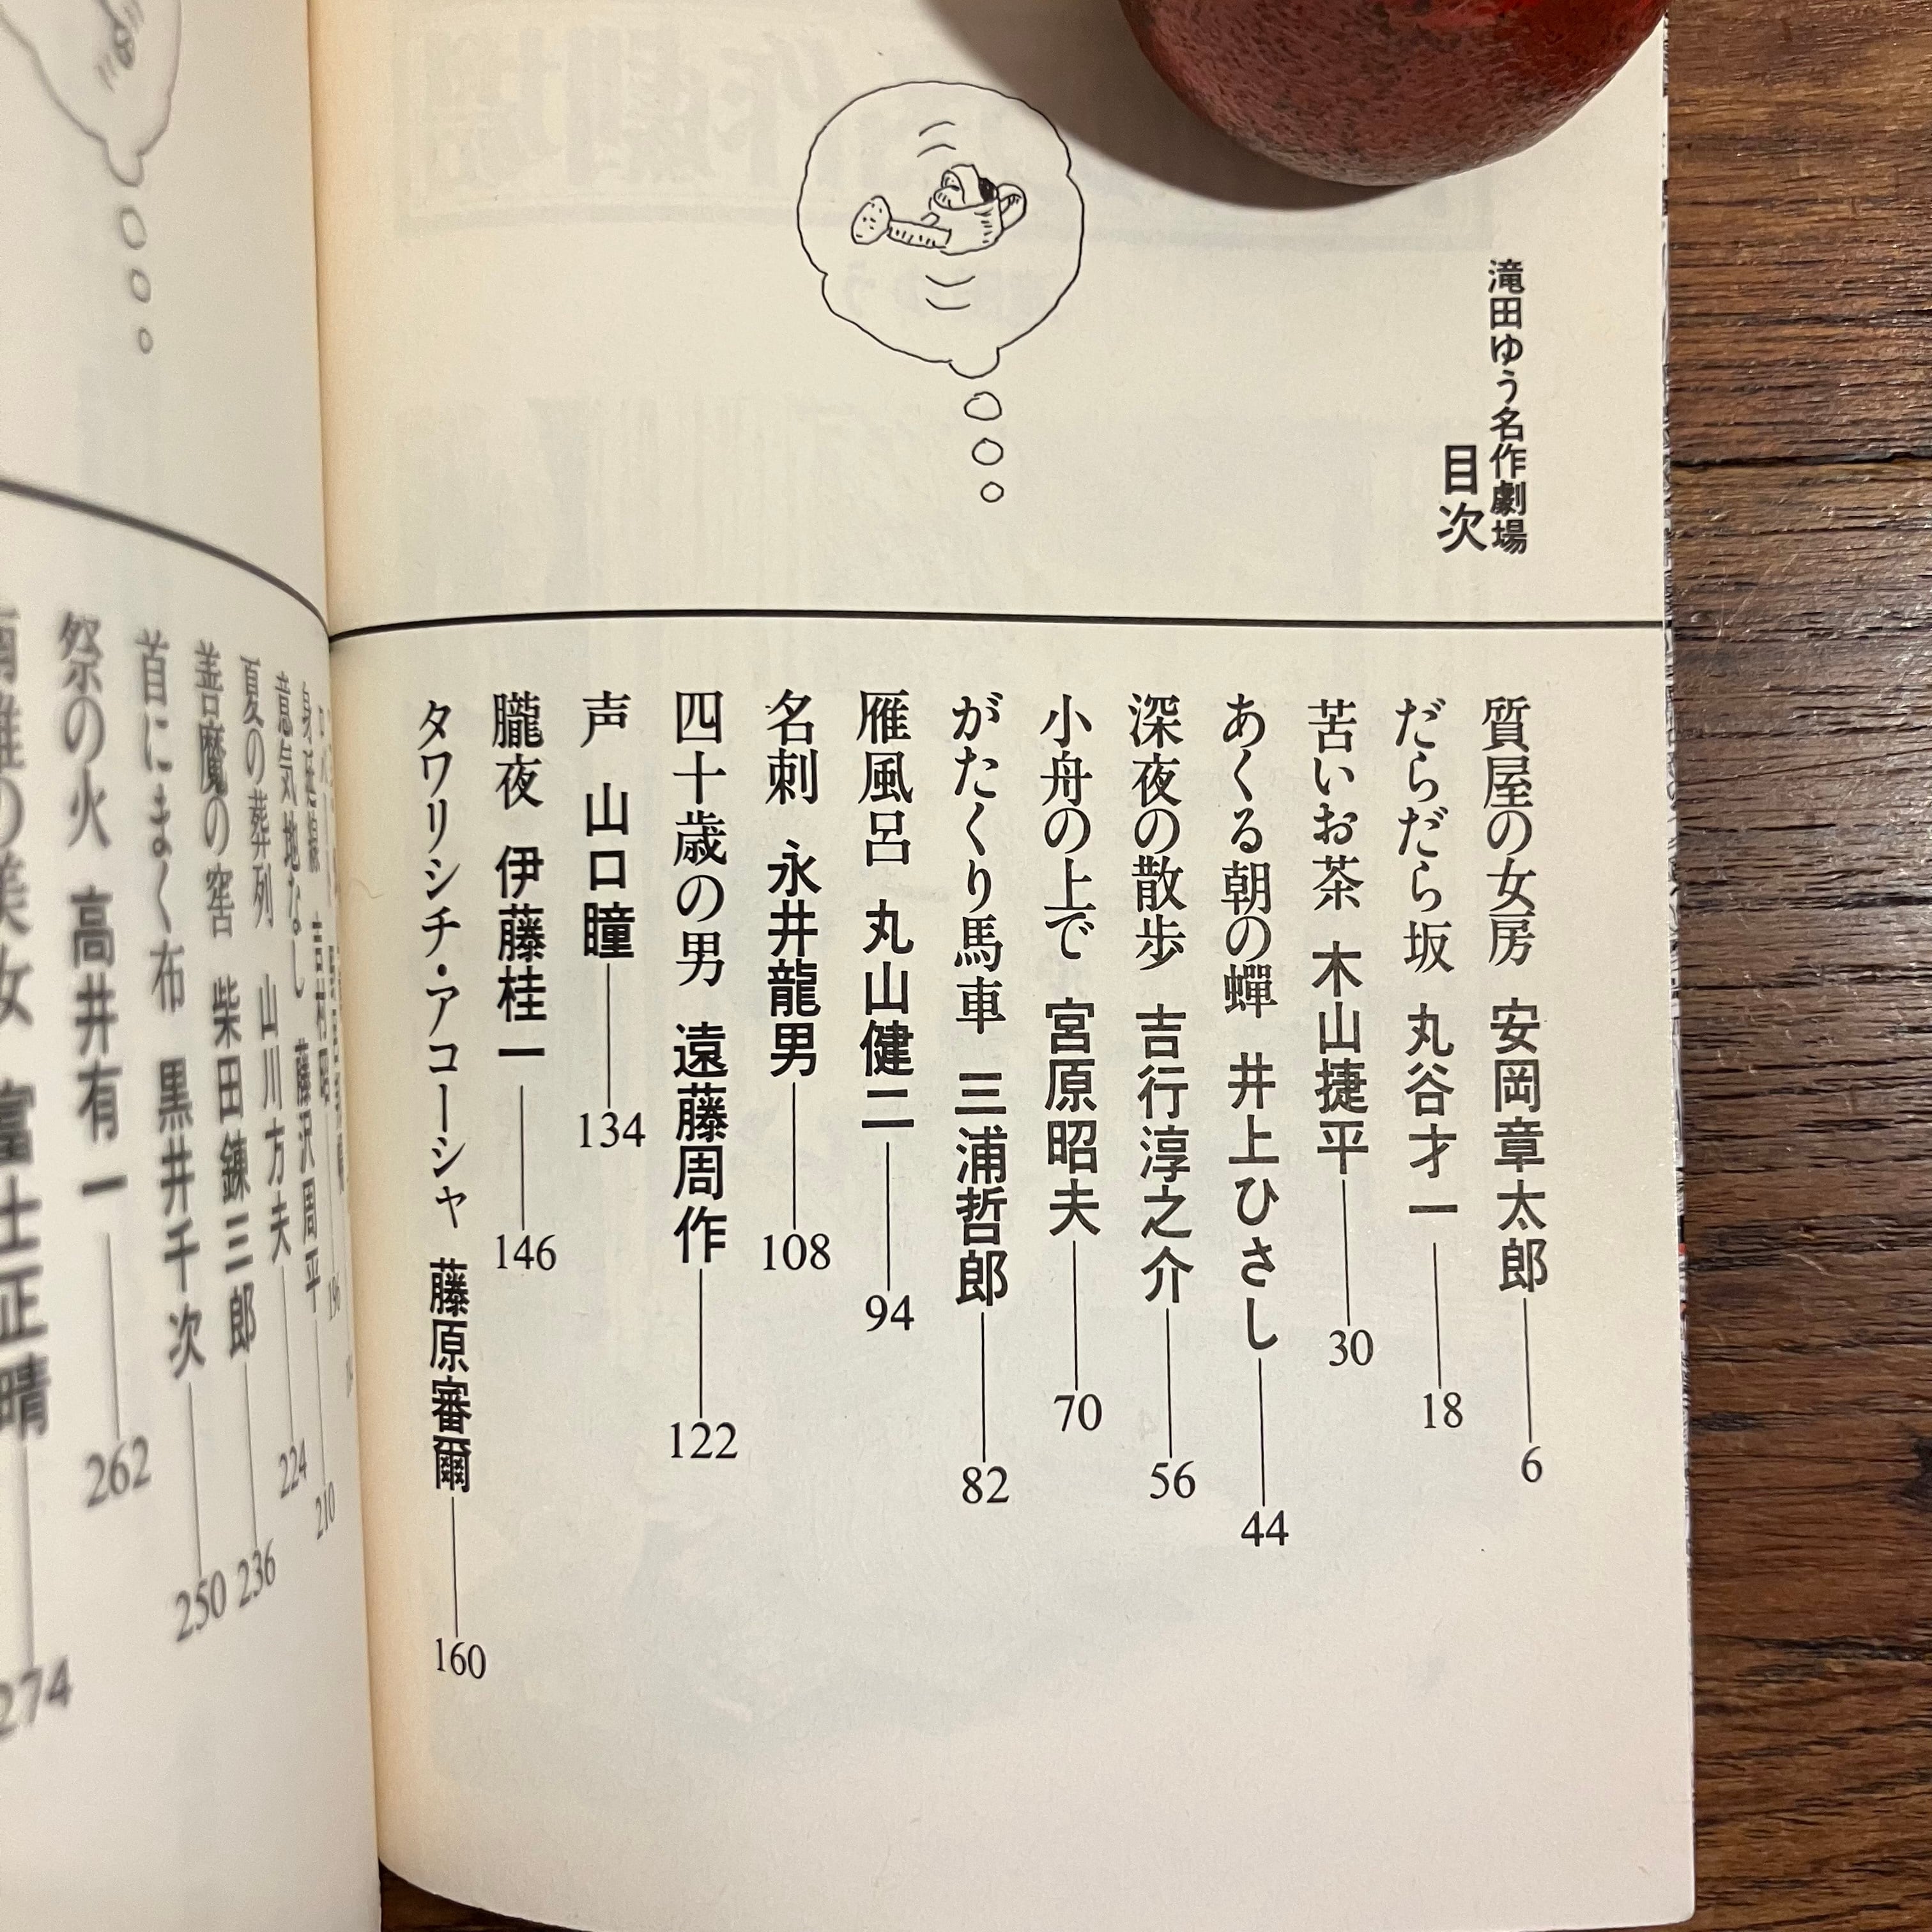 滝田ゆう名作劇場
目次
質屋の女房 安岡章太郎 6
だらだら坂 丸谷才一 18
苦いお茶 木山捷平 30
あくる朝の蟬 井上ひさし 44
深夜の散歩 吉行淳之介 56
小舟の上で 宮原昭夫 70
がたくり馬車 三浦哲郎 82
雁風呂 丸山健二 94
名刺 永井龍男 108
四十歳の男 遠藤周作 122
声 山口瞳 134
朧夜 伊藤桂一 146
タワリシチ・アコーシャ 藤原審爾 160
196
身延線 吉村昭 210
意気地なし 藤沢周平
夏の葬列 山川方夫 224
善魔の窖 柴田錬三郎 236
首にまく布 黒井千次 250
祭の火 高井有一 262
の美女 富士正晴 274